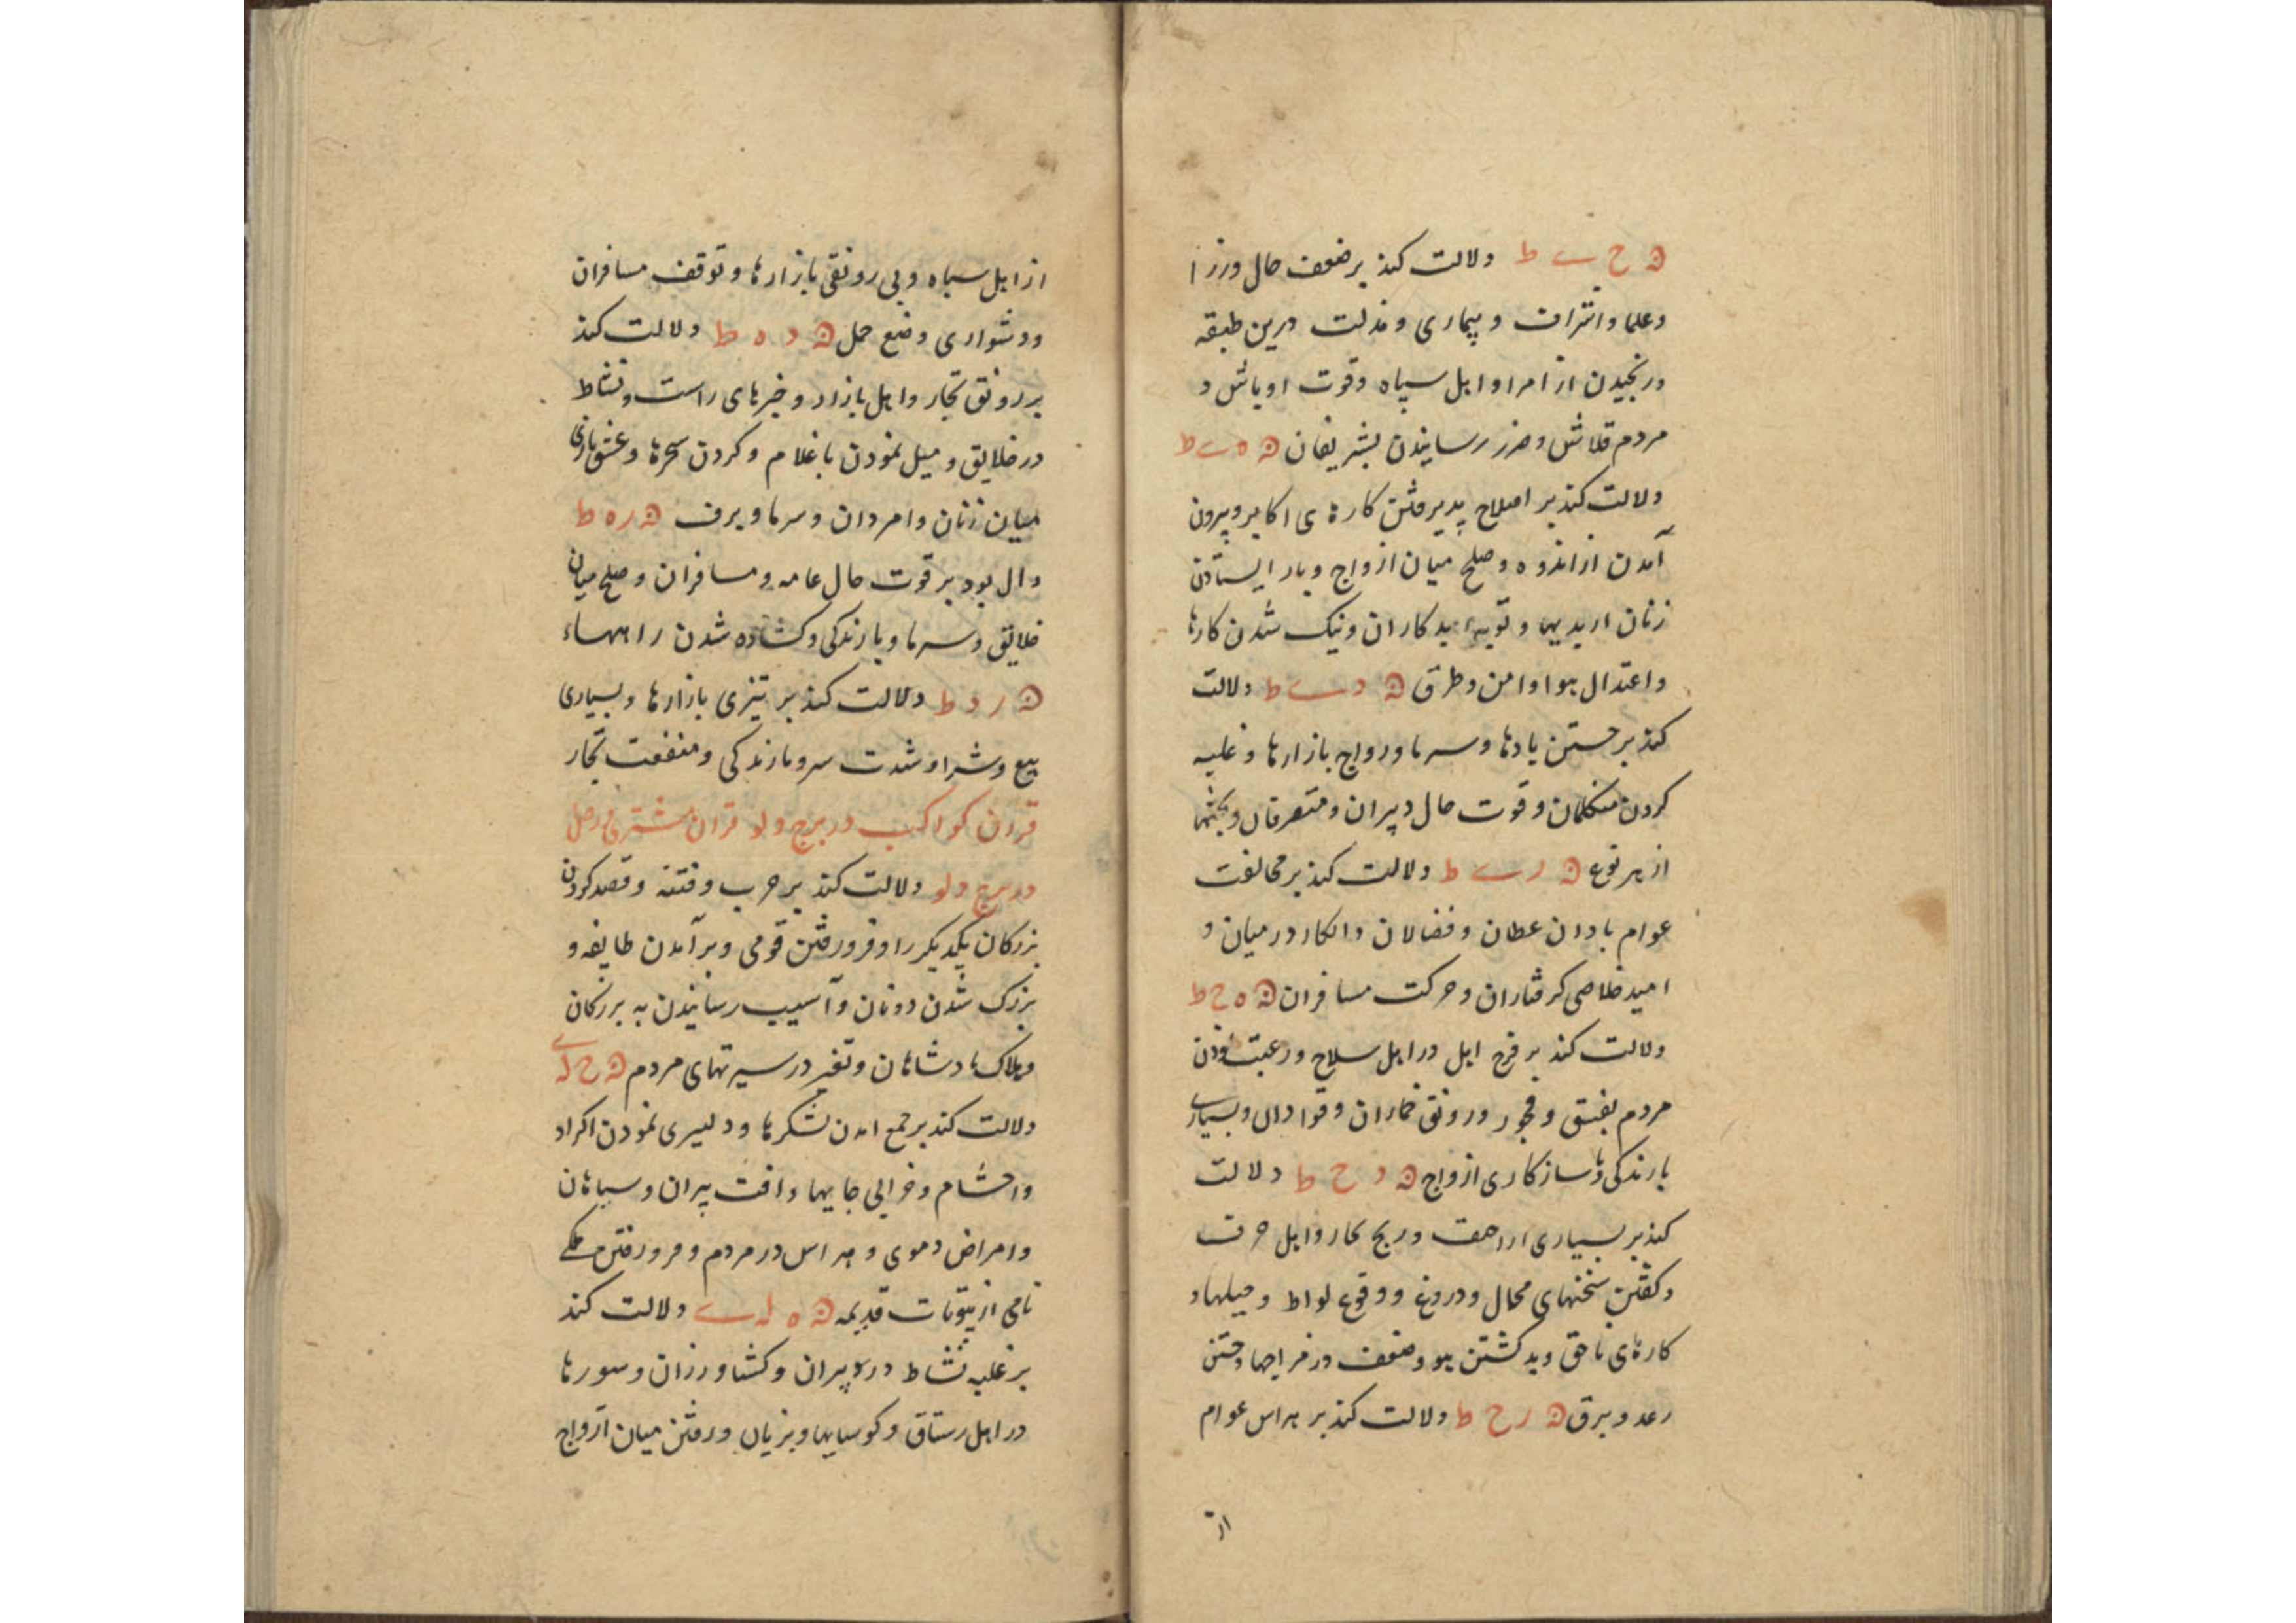 ح ے ط دلالت کند بر ضعف حال وزرا
و علما و اشراف و بیماری و مذلت درین طبقه
و رنجیدن از امرا و اهل سپاه و قوت اوباش و
مردم قلاش و ضرر رسانیدن بشریفان ه ے ط
دلالت کند بر اصلاح پدیرفتن کارهای اکابر و بیرون
آمدن از اندوه و صلح میان ازواج و باز ایستادن
زنان از بدیها و توبهٔ بدکاران و نیک شدن کارها
و اعتدال هوا و امن و طرق د ے ط دلالت
کند بر جستن بادها و سرما و رواج بازارها و غلبه
کردن متکلمان و قوت حال دبیران و متصرفان و بحثها
از هر نوع ر ے ط دلالت کند بر مخالفت
عوام با و انکار در میان و
امید خلاصی کرفتاران و حرکت مسافران ه ح ط
دلالت کند بر فرح اهل در اهل سلاح و رغبت نمودن
مردم بفسق و فجور و رونق خماران و قوادان و بسیاری
بارندکی و ناسازکاری ازواج د ح ط دلالت
کند بر بسیاری اراجیف و ربح تجار و اهل حرفت
و کفتن سخنهای محال و دروغ و وقوع لواط و حیلها و
کارهای ناحق و بد کشتن هوا و ضعف در مزاجها و جستن
رعد و برق ر ح ط دلالت کند بر هراس عوام
از
از اهل سپاه و بی رونقی بازارها و توقف مسافران
و دشواری وضع حمل د ه ط دلالت کند
بر رونق تجار و اهل بازار و خبرهای راست و نشاط
در خلایق و میل نمودن با غلام و کردن سحرها و عشق بازی
میان زنان و امردان و سرما و برف ر ه ط
دال بود بر قوت حال عامه و مسافران و صلح میان
خلایق و سرما و بارندکی و کشاده شدن راههاء
ر د ط دلالت کند بر تیزی بازارها و بسیاری
بیع و شرا و شدت سرما و بارندکی و منفعت تجار
قران کواکب در برج دلو قران مشتری و زحل
در برج دلو دلالت کند بر حرب و فتنه و قصد کردن
بزرکان یکدیکر را و فرو رفتن قومی و بر آمدن طایفه و
بزرک شدن دونان و آسیب رسانیدن به بزرکان
و هلاک پادشاهان و تغیر در سیرتهای مردم ح لے
دلالت کند بر جمع امدن لشکرها و دلیری نمودن اکراد
و احشام و خرابی جایها و افت پیران و سپاهان
و امراض دموی و هراس در مردم و فرو رفتن ملکے
نامی از بیوتات قدیمه ه لے دلالت کند
بر غلبه نشاط در پیران و کشاورزان و سورها
در اهل رستاق و کوهپایها و رفتن میان ازواج